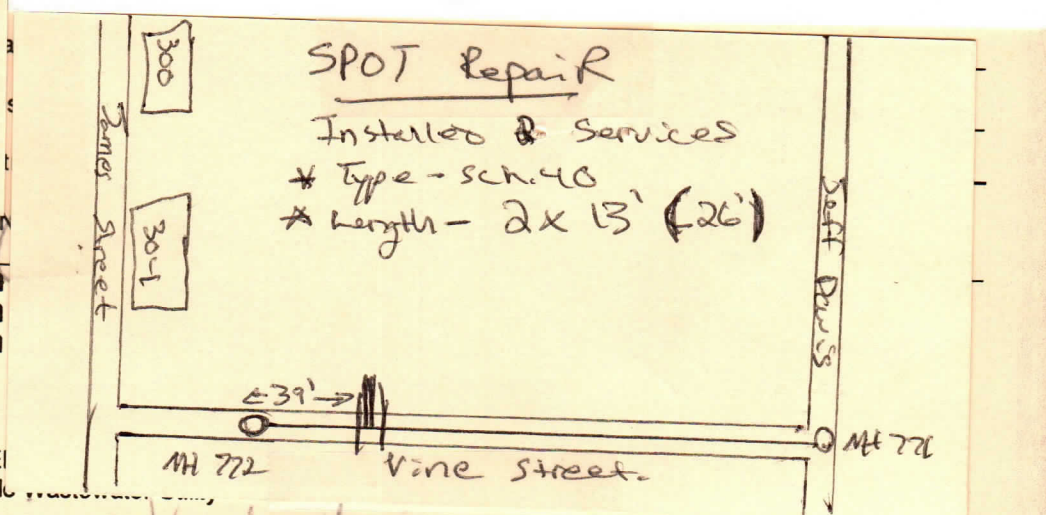 SPOT Repair
Installed 2 Services
* Type - Sch. 40
* Length - 2 x 13' (26')
300
301
James Street
Jeff Davis
←39'→
MH 722
Vine Street.
MH 721
Wastewater Utility